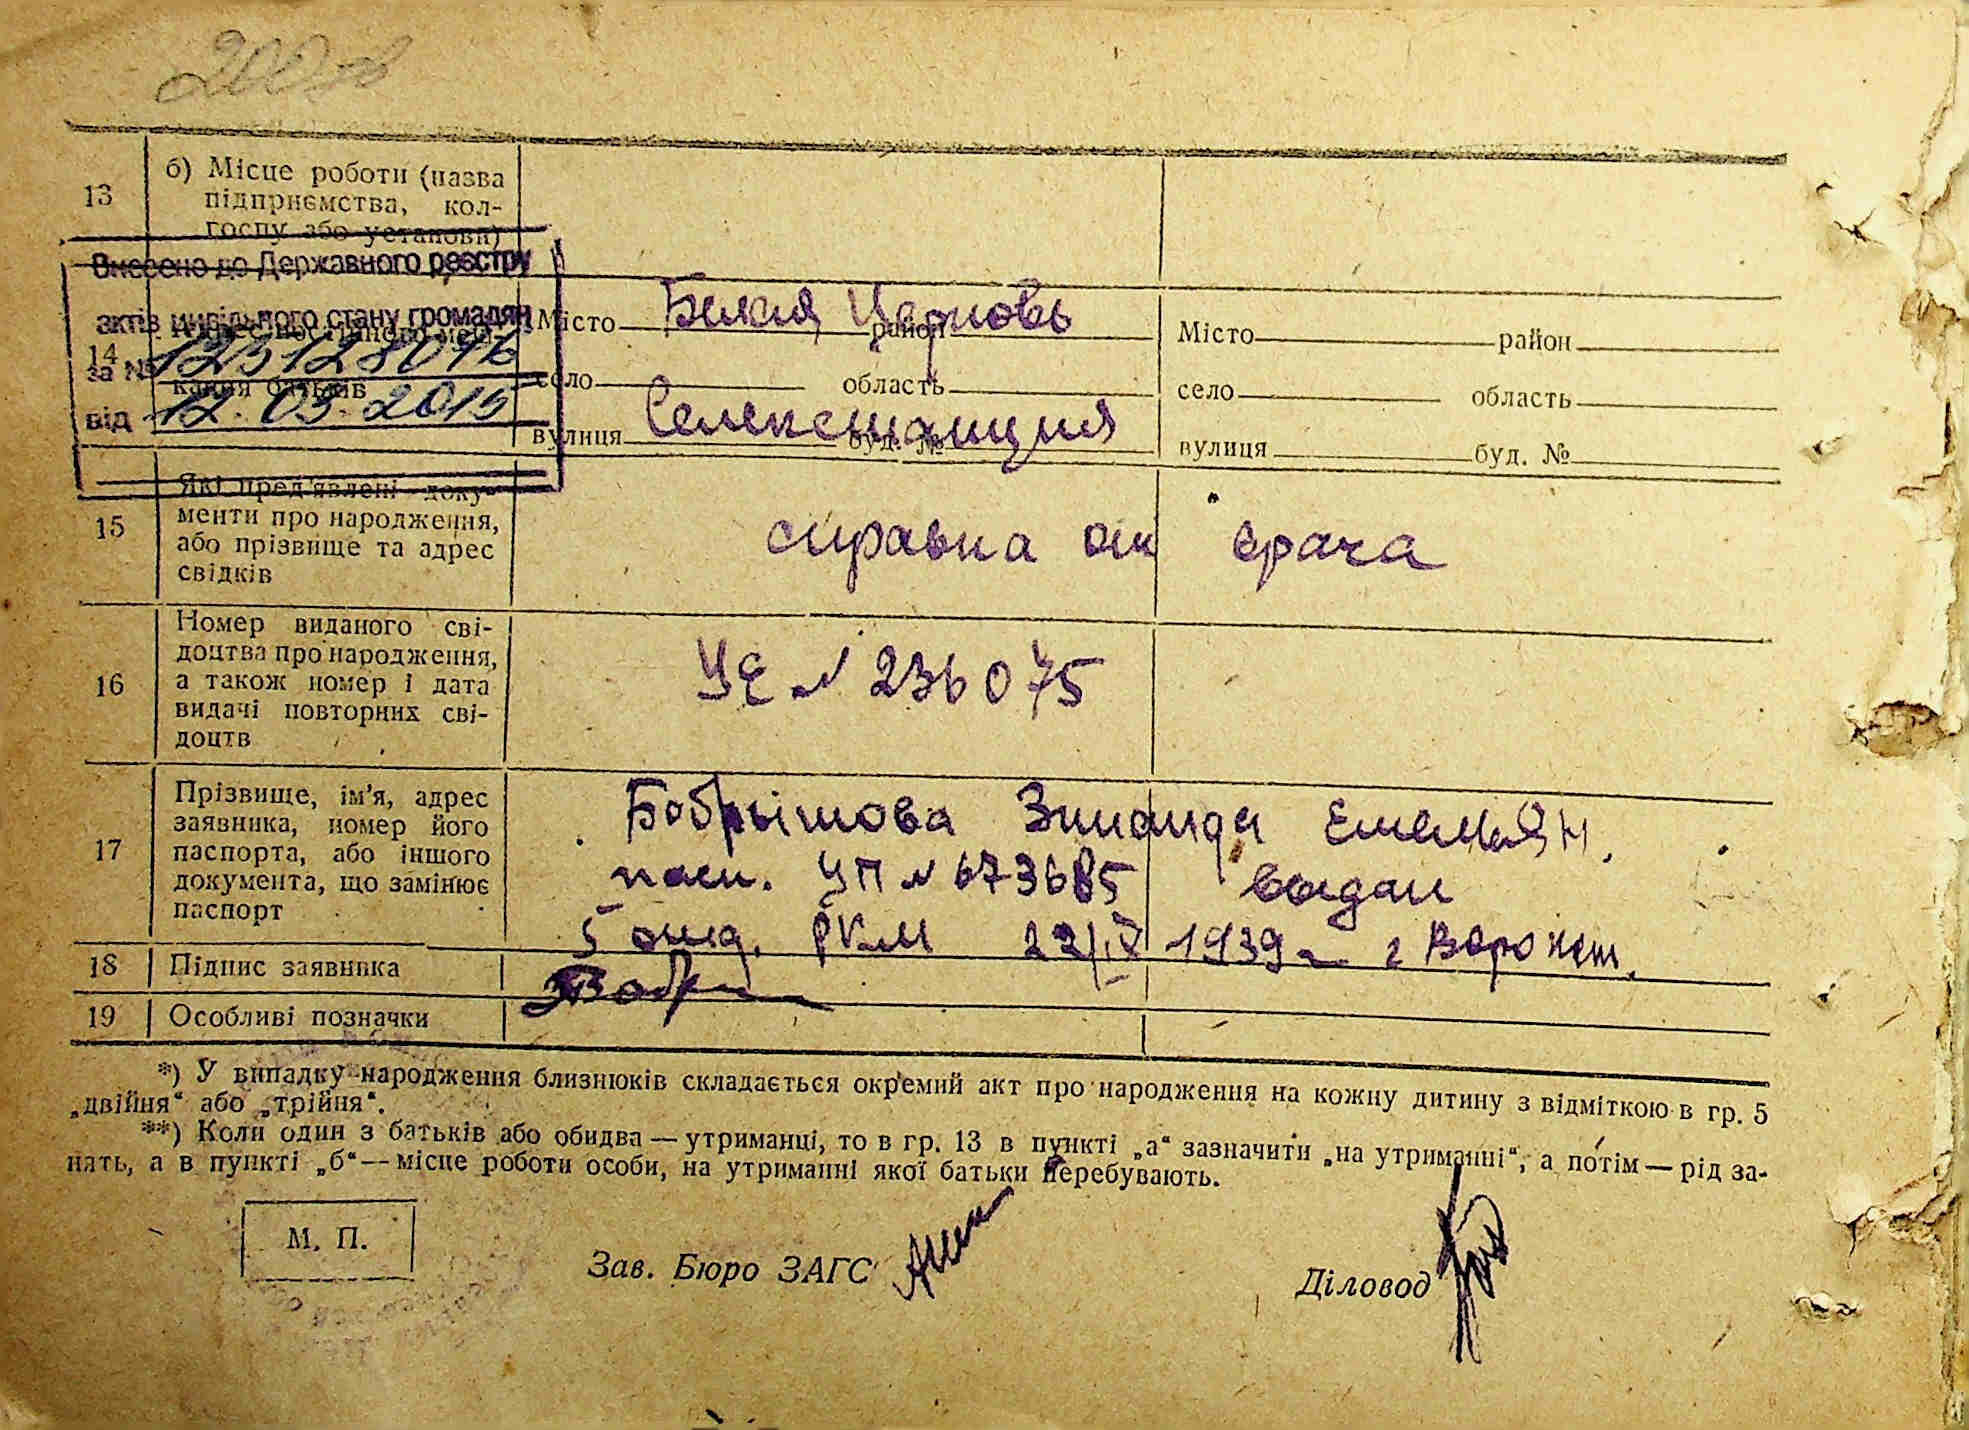 13
б) Місце роботи (назва
підприємства, кол-
госпу або установи)
Внесено до Державного реєстру
актів цивільного стану громадян
за №
від 12.03.2015
14
кання батьків
Місто Белая Церковь район
село область
вулиця Селекстанция буд. №
Місто район
село область
вулиця буд. №
15
Які пред'явлені доку-
менти про народження,
або прізвище та адрес
свідків
справка от врача
16
Номер виданого сві-
доцтва про народження,
а також номер і дата
видачі повторних сві-
доцтв
УЕ № 236075
17
Прізвище, ім'я, адрес
заявника, номер його
паспорта, або іншого
документа, що замінює
паспорт
Бобрышова Зинаида Емельян.
пасп. УП № 673685 выдан
5 отд. РКМ 22/IV 1939 г. г Воронеж.
18 Підпис заявника
19 Особливі позначки
*) У випадку народження близнюків складається окремий акт про народження на кожну дитину з відміткою в гр. 5
„двійня“ або „трійня“.
**) Коли один з батьків або обидва — утриманці, то в гр. 13 в пункті „а“ зазначити „на утриманні“, а потім — рід за-
нять, а в пункті „б“ — місце роботи особи, на утриманні якої батьки перебувають.
М. П.
Зав. Бюро ЗАГС
Діловод